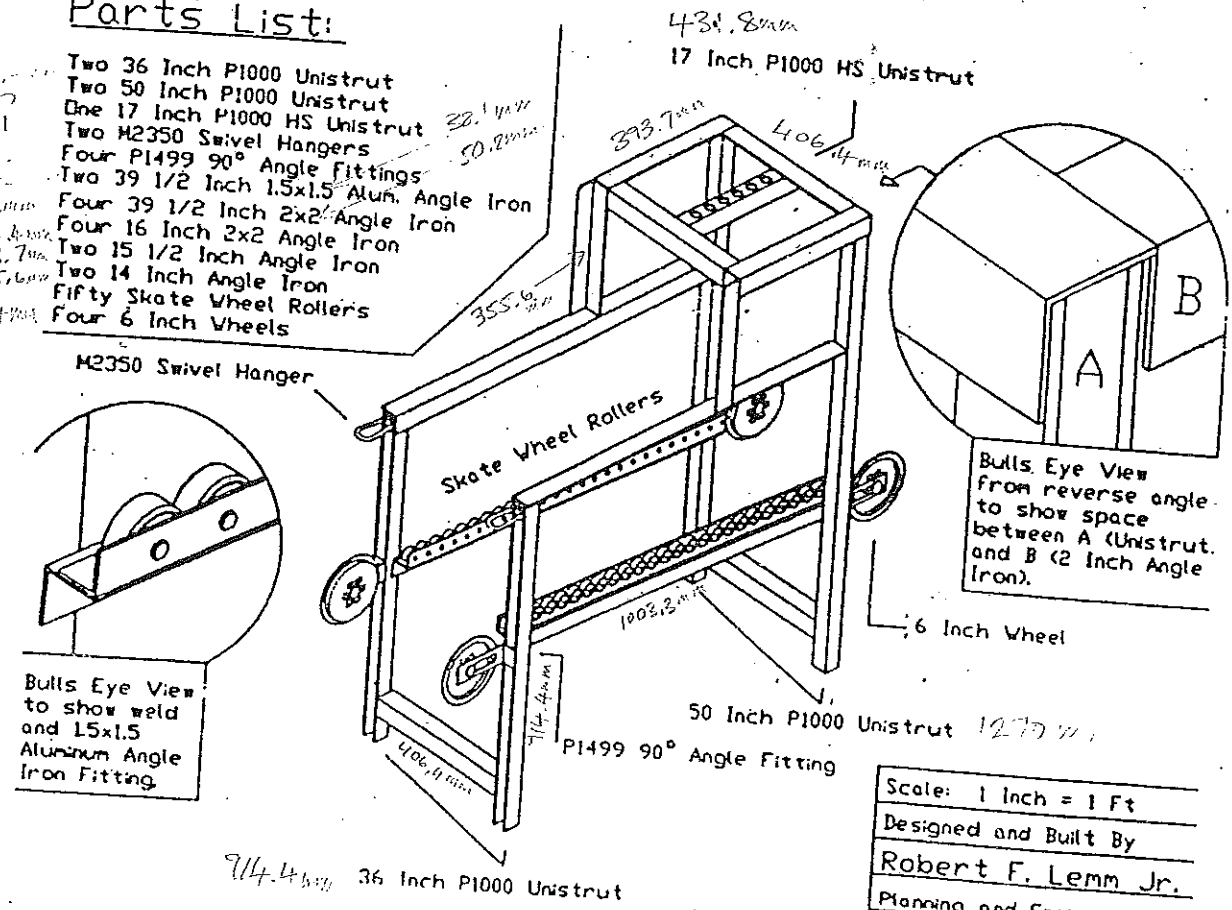 Parts List:
Two 36 Inch P1000 Unistrut
Two 50 Inch P1000 Unistrut
One 17 Inch P1000 HS Unistrut
Two M2350 Swivel Hangers
Four P1499 90° Angle Fittings
Two 39 1/2 Inch 1.5x1.5 Alum. Angle Iron
Four 39 1/2 Inch 2x2 Angle Iron
Four 16 Inch 2x2 Angle Iron
Two 15 1/2 Inch Angle Iron
Two 14 Inch Angle Iron
Fifty Skate Wheel Rollers
Four 6 Inch Wheels
38.1mm
50.8mm
431.8mm
17 Inch P1000 HS Unistrut
393.7mm
406.4mm
355.6mm
M2350 Swivel Hanger
Skate Wheel Rollers
A
B
Bulls Eye View
from reverse angle
to show space
between A (Unistrut.
and B (2 Inch Angle
Iron).
6 Inch Wheel
1003.3mm
Bulls Eye View
to show weld
and 1.5x1.5
Aluminum Angle
Iron Fitting
914.4mm
406.4mm
50 Inch P1000 Unistrut
P1499 90° Angle Fitting
914.4mm 36 Inch P1000 Unistrut
Scale: 1 Inch = 1 Ft
Designed and Built By
Robert F. Lemm Jr.
Planning and